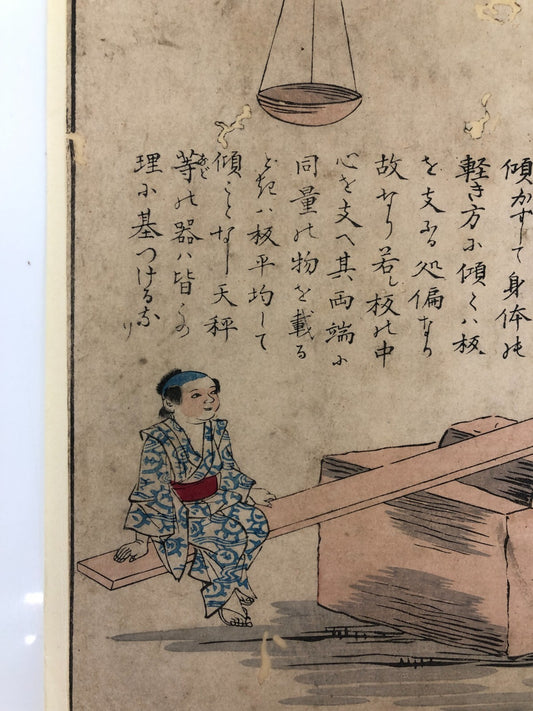 傾かずして身体の
軽き方に傾くハ板
を支ふる処偏なり
故なり若し板の中
心を支へ其両端に
同量の物を載る
ときハ板平均して
傾くことなし天秤
等の器ハ皆この
理に基つけるなり